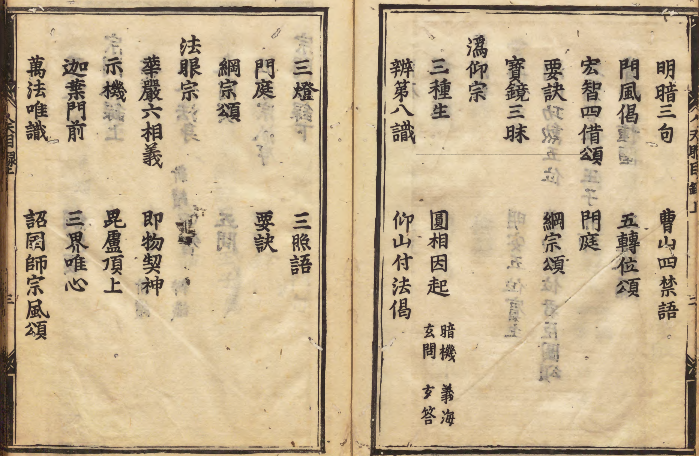 明暗三句 曹山四禁語
門風偈 五轉位頌
宏智四借頌 門庭
要訣 綱宗頌
寶鏡三昧
溈仰宗
三種生 圓相因起 暗機 義海
玄問 玄答
辨第八識 仰山付法偈
三燈語 三照語
門庭 要訣
綱宗頌
法眼宗
華嚴六相義 即物契神
示機 毘盧頂上
迦葉門前 三界唯心
萬法唯識 韶國師宗風頌